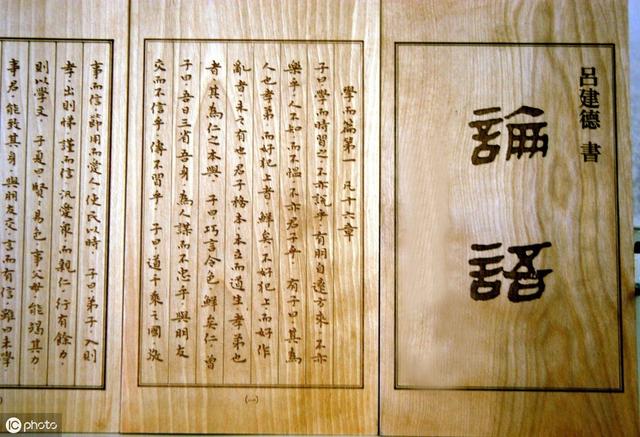 呂建德 書
論語
學而篇第一 凡十六章
子曰學而時習之不亦說乎有朋自遠方來不亦
樂乎人不知而不慍不亦君子乎 有子曰其為
人也孝弟而好犯上者鮮矣不好犯上而好作
亂者未之有也君子務本本立而道生孝弟也
者其為仁之本與 子曰巧言令色鮮矣仁 曾
子曰吾日三省吾身為人謀而不忠乎與朋友
交而不信乎傳不習乎 子曰道千乘之國敬
(一)
事而信節用而愛人使民以時 子曰弟子入則
孝出則悌謹而信汎愛眾而親仁行有餘力
則以學文 子夏曰賢賢易色事父母能竭其力
事君能致其身與朋友交言而有信雖曰未學
iC photo